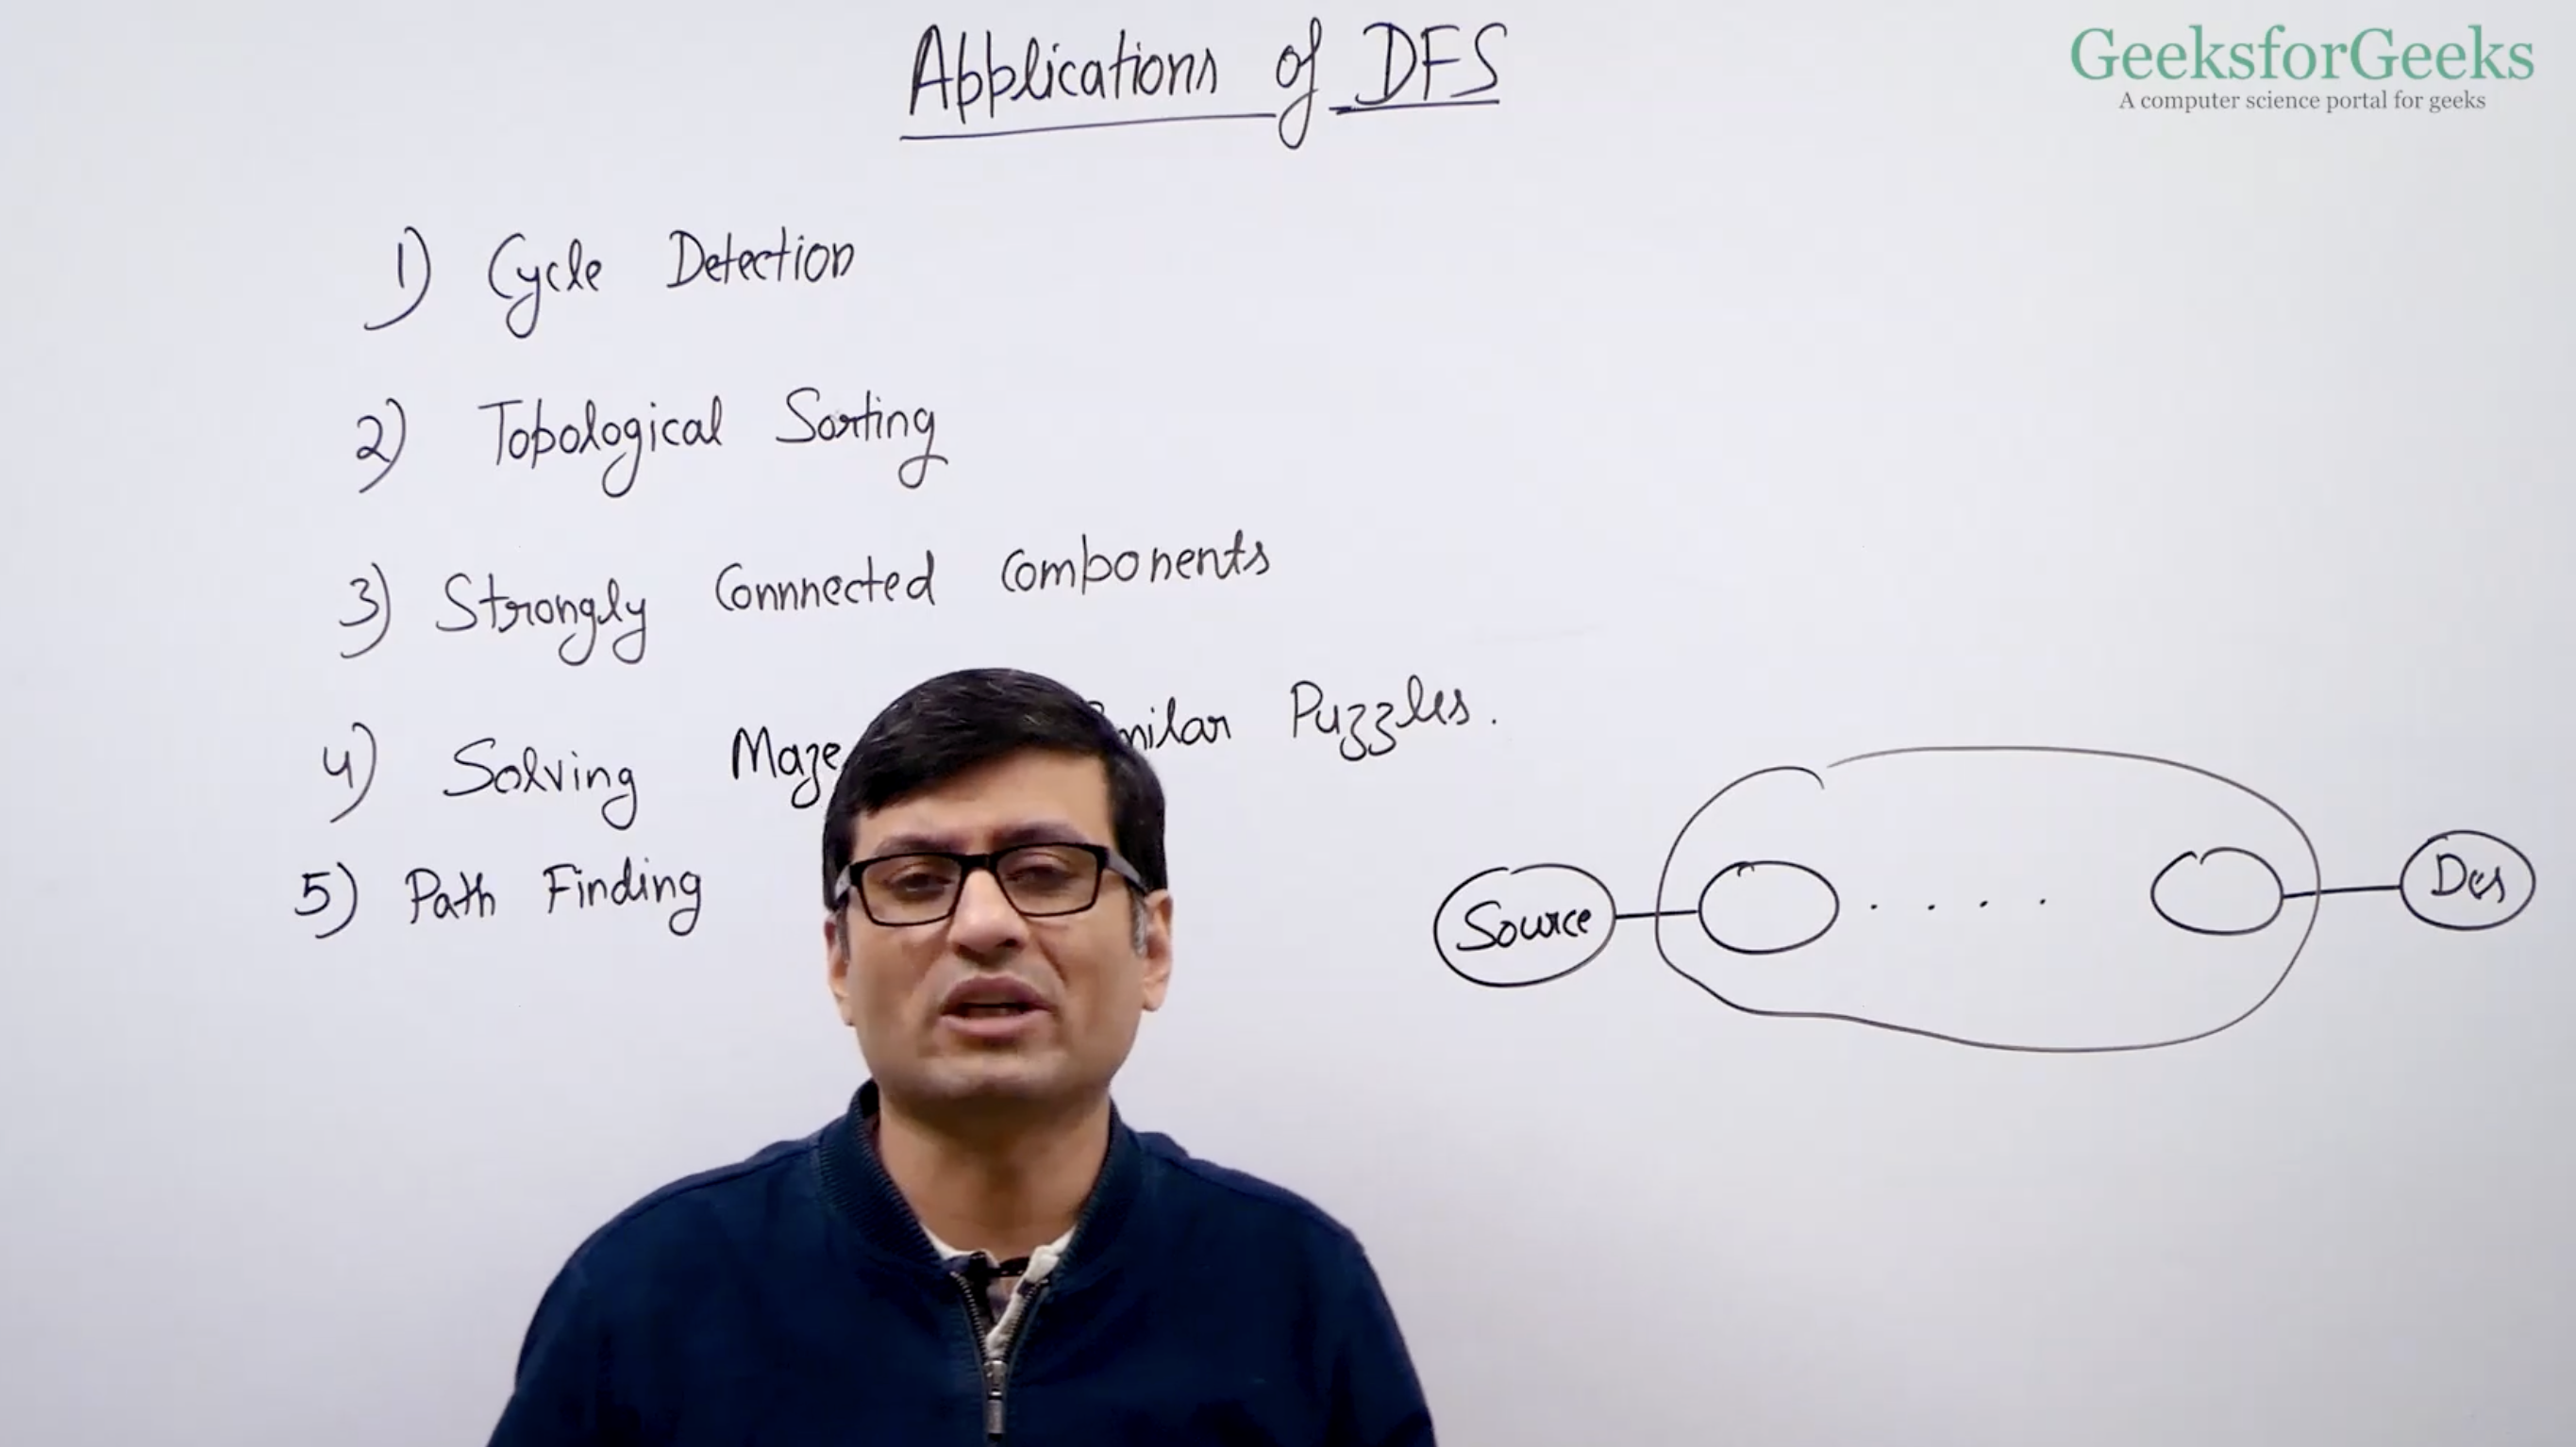 Applications of DFS
GeeksforGeeks
A computer science portal for geeks
1) Cycle Detection
2) Topological Sorting
3) Strongly Connnected Components
4) Solving Maze milar Puzzles.
5) Path Finding
Source . . . . Des